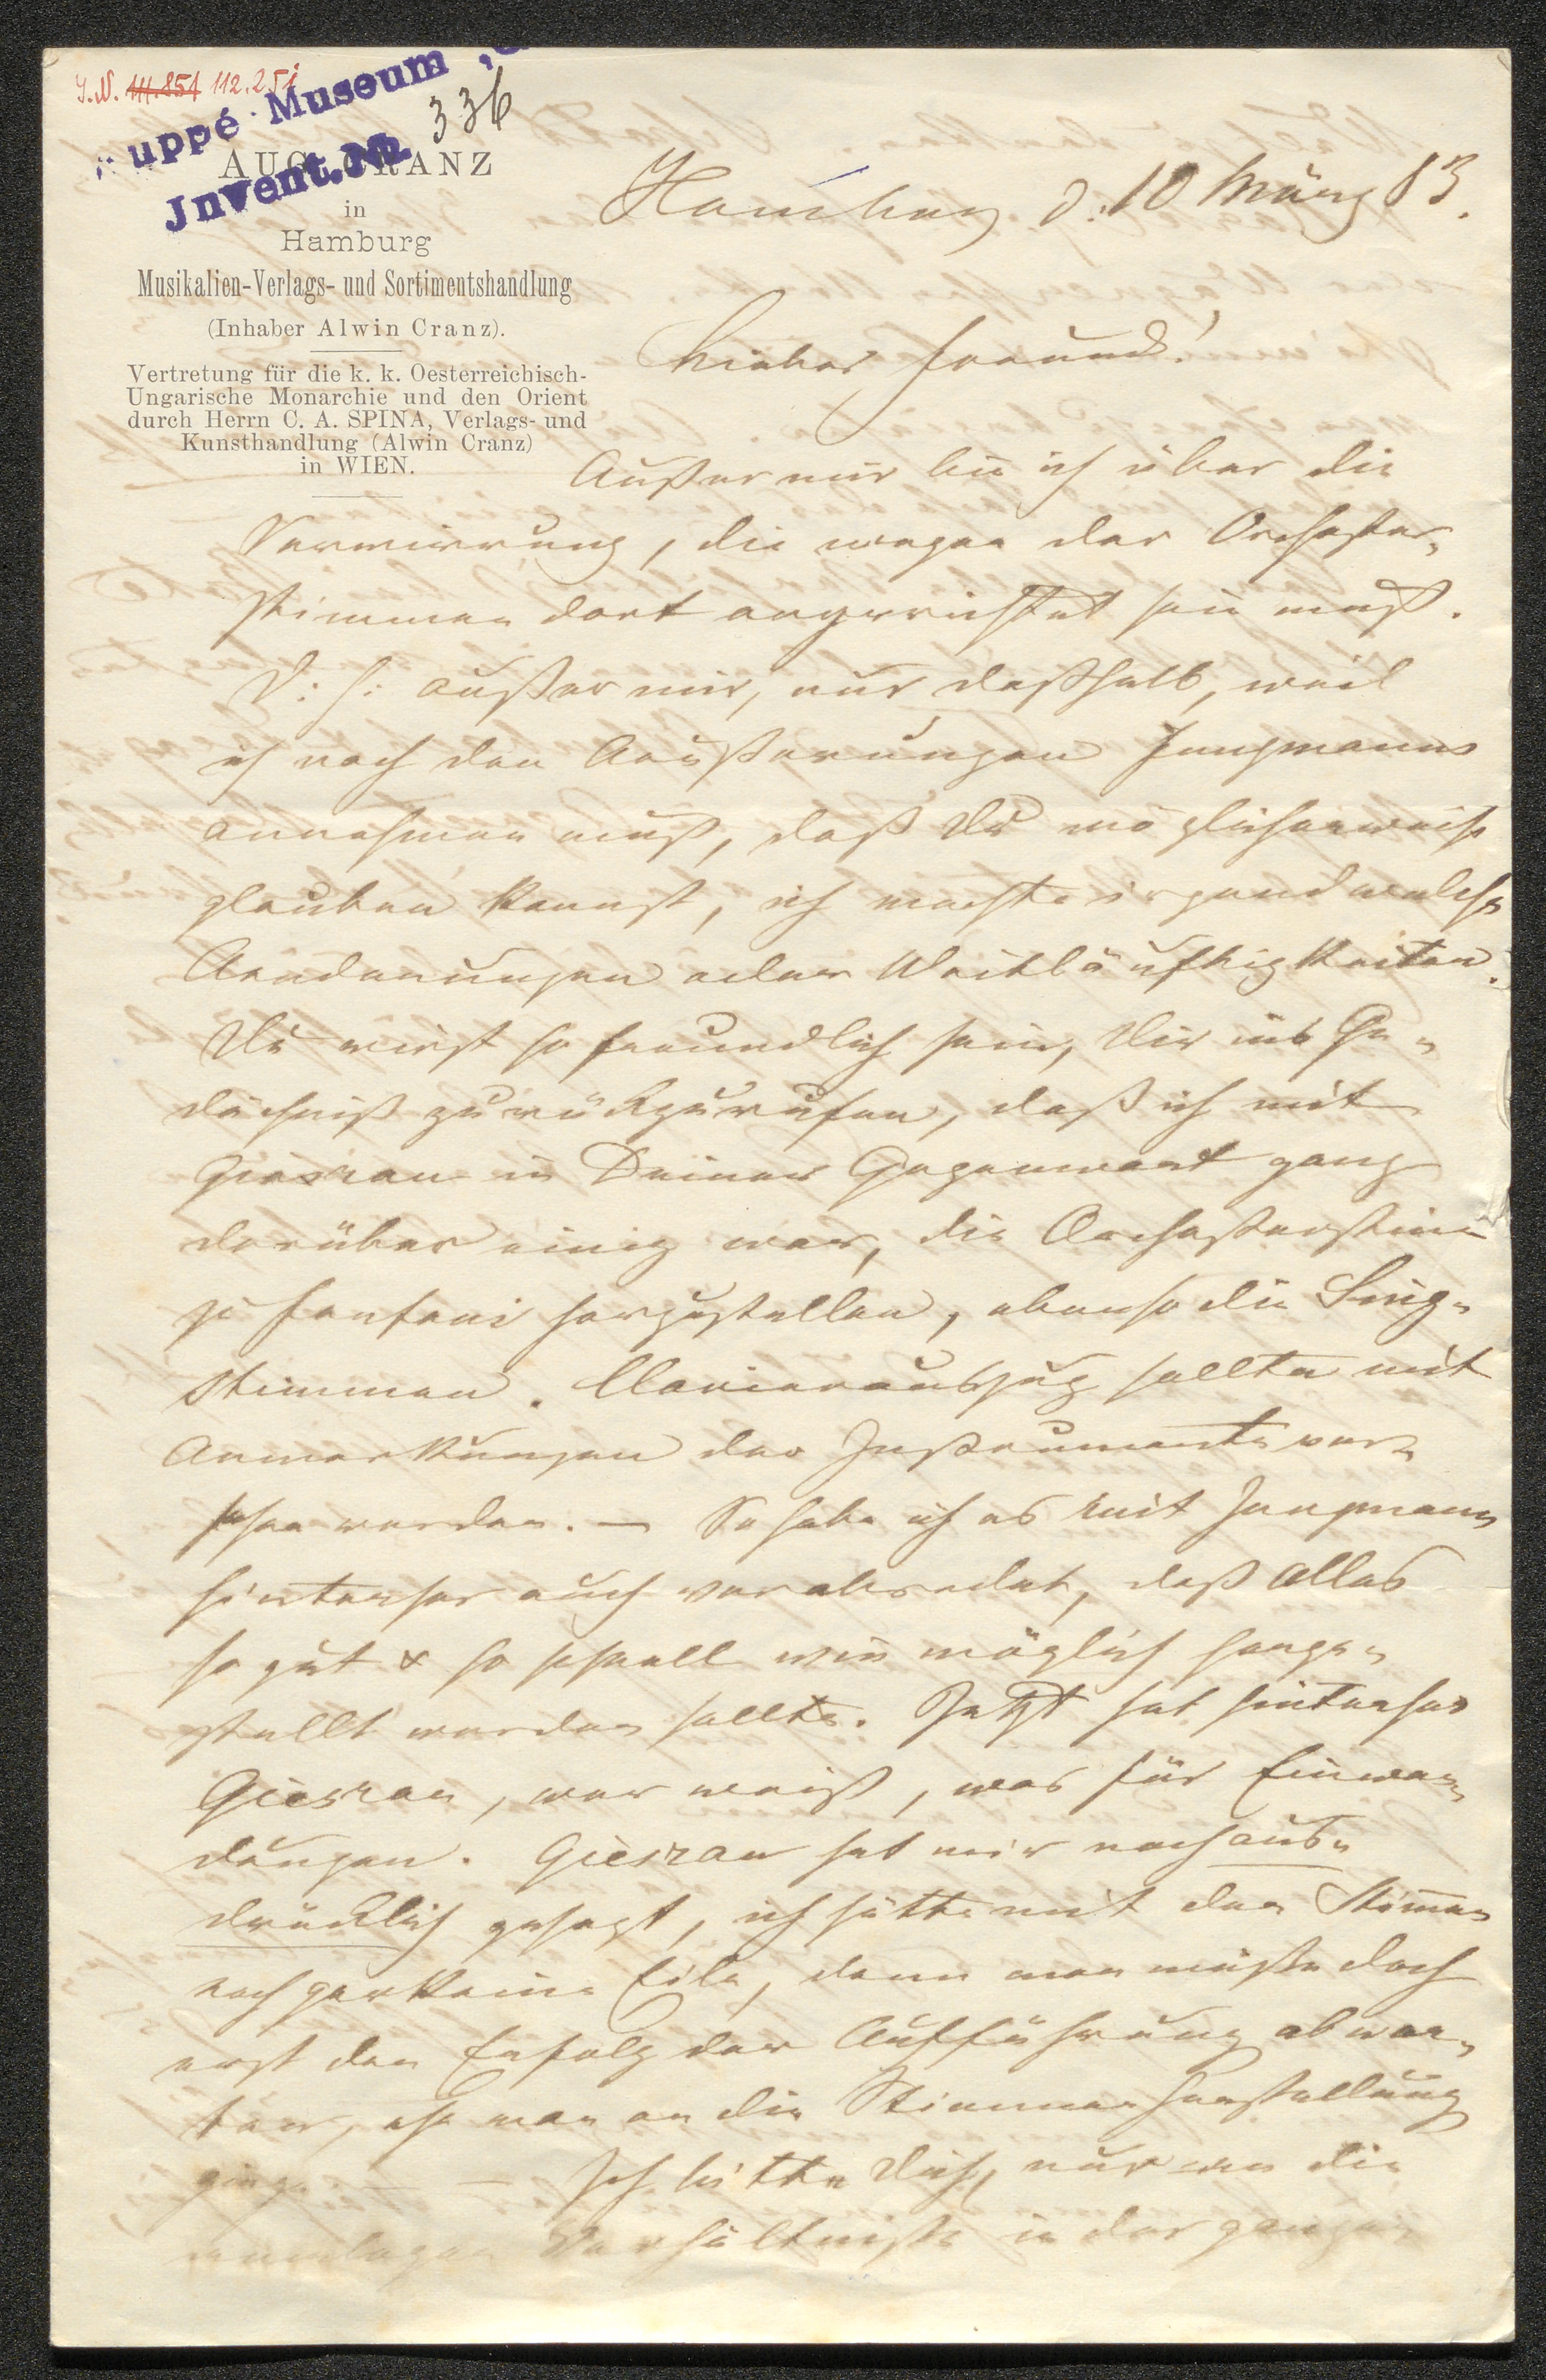 J.N. 111.851 112.251
Suppé-Museum
Invent. No. 336
AUG. CRANZ
in
Hamburg
Musikalien-Verlags- und Sortimentshandlung
(Inhaber Alwin Cranz).
Vertretung für die k. k. Oesterreichisch-
Ungarische Monarchie und den Orient
durch Herrn C. A. SPINA, Verlags- und
Kunsthandlung (Alwin Cranz)
in WIEN.
Hamburg d: 10 März 83.
Lieber Freund!
Außer mir bin ich über die
Verwirrung, die wegen der Orchester-
stimmen dort angerichtet sein muß.
D: h: außer mir, nur deßhalb, weil
ich nach den Aeußerungen Jungmanns
annehmen muß, daß Du möglicherweise
glauben kannst, ich machte irgendwelche
Aenderungen oder Weitläufthigkeiten.
Du wirst so freundlich sein, Dir ins Ge-
dächniß zurückzurufen, daß ich mit
Giesrau in Deiner Gegenwart ganz
darüber einig war, die Orchesterstim
herzustellen, ebenso die Sing-
stimmen. Clavierauszug sollte mit
Anmerkungen der Instrumente ver-
sehen werden. — So habe ich es mit Jungmann
hinterher auch verabredet, daß alles
so gut & so schnell wie möglich herge-
stellt werden sollte. Jetzt hat hinterher
Giesrau, wer weiß, was für Einwen-
dungen. Giesrau hat mir noch aus-
drücklich gesagt, ich hätte mit den Stimmen
noch gar keine Eile, denn man müßte doch
erst den Erfolg der Aufführung abwar-
ten, ehe man an die Stimmen Herstellung
ginge. — — Ich bitte Dich, nur an die
Verhältniße in der ganzen